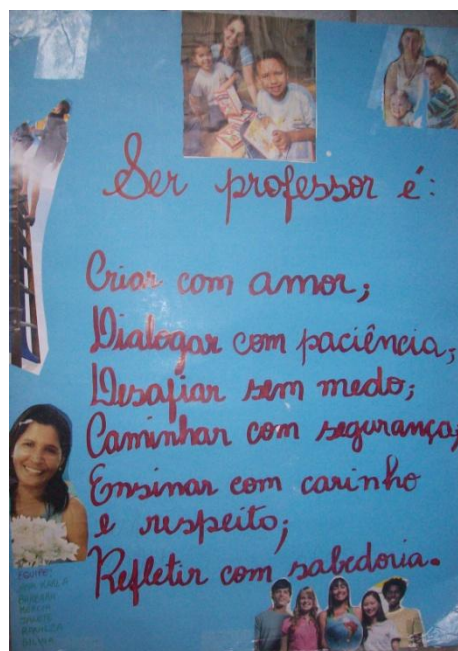 Ser professor é:
Criar com amor;
Dialogar com paciência;
Desafiar sem medo;
Caminhar com segurança;
Ensinar com carinho
e respeito;
Refletir com sabedoria.
EQUIPE:
KARLA